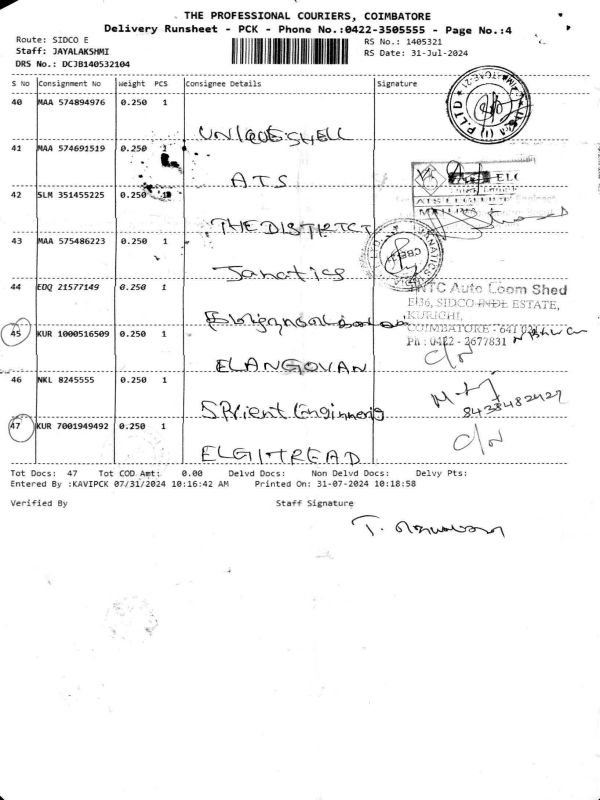 THE PROFESSIONAL COURIERS, COIMBATORE
Delivery Runsheet - PCK - Phone No.:0422-3505555 - Page No.:4
Route: SIDCO E
RS No.: 1405321
Staff: JAYALAKSHMI
RS Date: 31-Jul-2024
DRS No.: DCJB140532104
S No Consignment No Weight PCS Consignee Details Signature
40 MAA 574894976 0.250 1
UNIQUESHELL
41 MAA 574691519 0.250 1
ATS
42 SLM 351455225 0.250 1
THE DISTRICT
43 MAA 575486223 0.250 1
Janatics
44 EDQ 21577149 0.250 1
INTC Auto Loom Shed
E/36, SIDCO INDL ESTATE,
KURICHI,
45 KUR 1000516509 0.250 1
COIMBATORE - 641 021
Ph : 0422 - 2677831
C/N
ELANGOVAN
46 NKL 8245555 0.250 1
8438482427
SPrient Enginnering
47 KUR 7001949492 0.250 1
C/N
ELGITREAD
Tot Docs: 47 Tot COD Amt: 0.00 Delvd Docs: Non Delvd Docs: Delvy Pts:
Entered By :KAVIPCK 07/31/2024 10:16:42 AM Printed On: 31-07-2024 10:18:58
Verified By Staff Signature